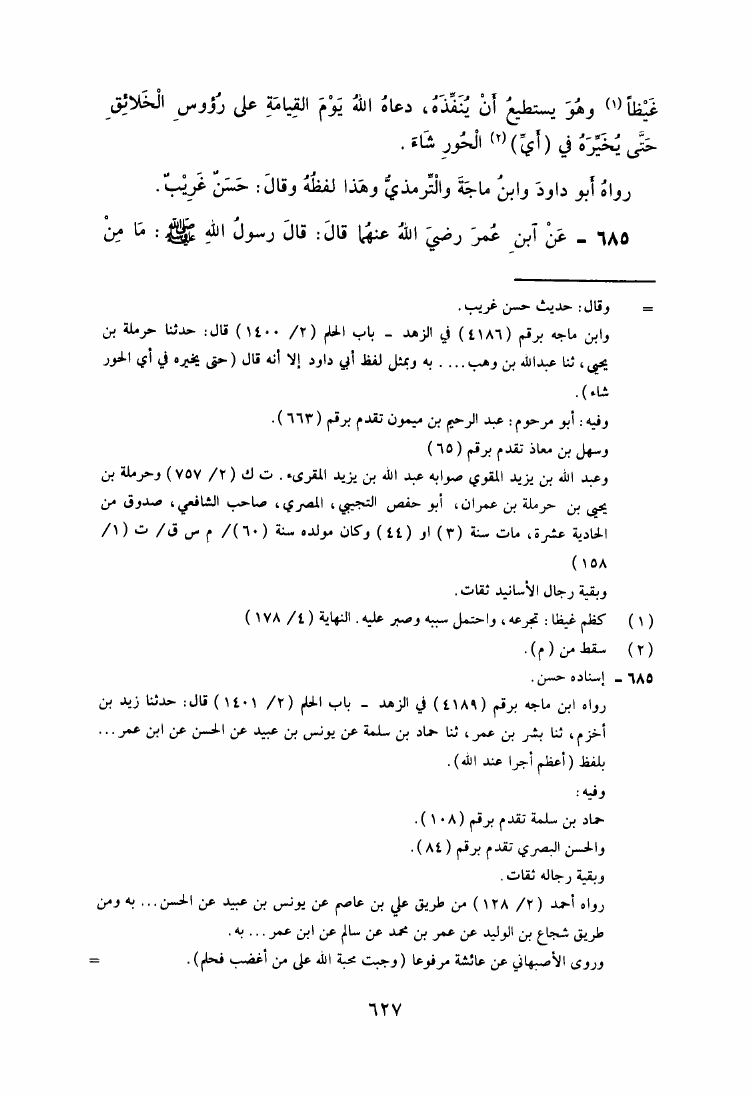 غَيْظاً (١) وهُوَ يستطيعُ أَنْ يُنَفِّذَهُ، دعاهُ اللهُ يَوْمَ القِيامَةِ على رُؤوسِ الْخَلائِقِ
حَتَّى يُخَيِّرَهُ في (أَيِّ) (٢) الْحُورِ شَاءَ .
رواهُ أَبو داودَ وابنُ ماجَةَ والتِّرمذيُّ وهَذا لفظُهُ وقالَ: حَسَنٌ غَرِيْبٌ.
٦٨٥ - عَنْ آبنِ عُمرَ رضيَ اللهُ عنهُما قالَ: قالَ رسولُ اللهِ ﷺ: مَا مِنْ
= وقال: حديث حسن غريب.
وابن ماجه برقم (٤١٨٦) في الزهد - باب الحلم (٢/ ١٤٠٠) قال: حدثنا حرملة بن
يحيى، ثنا عبدالله بن وهب.... به وبمثل لفظ أبي داود إلا أنه قال (حتى يخيره في أي الحور
شاء).
وفيه: أبو مرحوم: عبد الرحيم بن ميمون تقدم برقم (٦٦٣).
وسهل بن معاذ تقدم برقم (٦٥)
وعبد الله بن يزيد المقوي صوابه عبد الله بن يزيد المقرىء. ت ك (٢/ ٧٥٧) وحرملة بن
يحيى بن حرملة بن عمران، أبو حفص التجيبي، المصري، صاحب الشافعي، صدوق من
الحادية عشرة، مات سنة (٣) او (٤٤) وكان مولده سنة (٦٠)/ م س ق/ ت (١/
١٥٨)
وبقية رجال الأسانيد ثقات.
(١) كظم غيظا: تجرعه، واحتمل سببه وصبر عليه. النهاية (٤/ ١٧٨)
(٢) سقط من (م).
٦٨٥ - إسناده حسن.
رواه ابن ماجه برقم (٤١٨٩) في الزهد - باب الحلم (٢/ ١٤٠١) قال: حدثنا زيد بن
أخزم، ثنا بشر بن عمر، ثنا حماد بن سلمة عن يونس بن عبيد عن الحسن عن ابن عمر...
بلفظ (أعظم أجرا عند الله).
وفيه:
حماد بن سلمة تقدم برقم (١٠٨).
والحسن البصري تقدم برقم (٨٤).
وبقية رجاله ثقات.
رواه أحمد (٢/ ١٢٨) من طريق علي بن عاصم عن يونس بن عبيد عن الحسن... به ومن
طريق شجاع بن الوليد عن عمر بن محمد عن سالم عن ابن عمر... به.
وروى الأصبهاني عن عائشة مرفوعا (وجبت محبة الله على من أغضب فحلم). =
٦٢٧